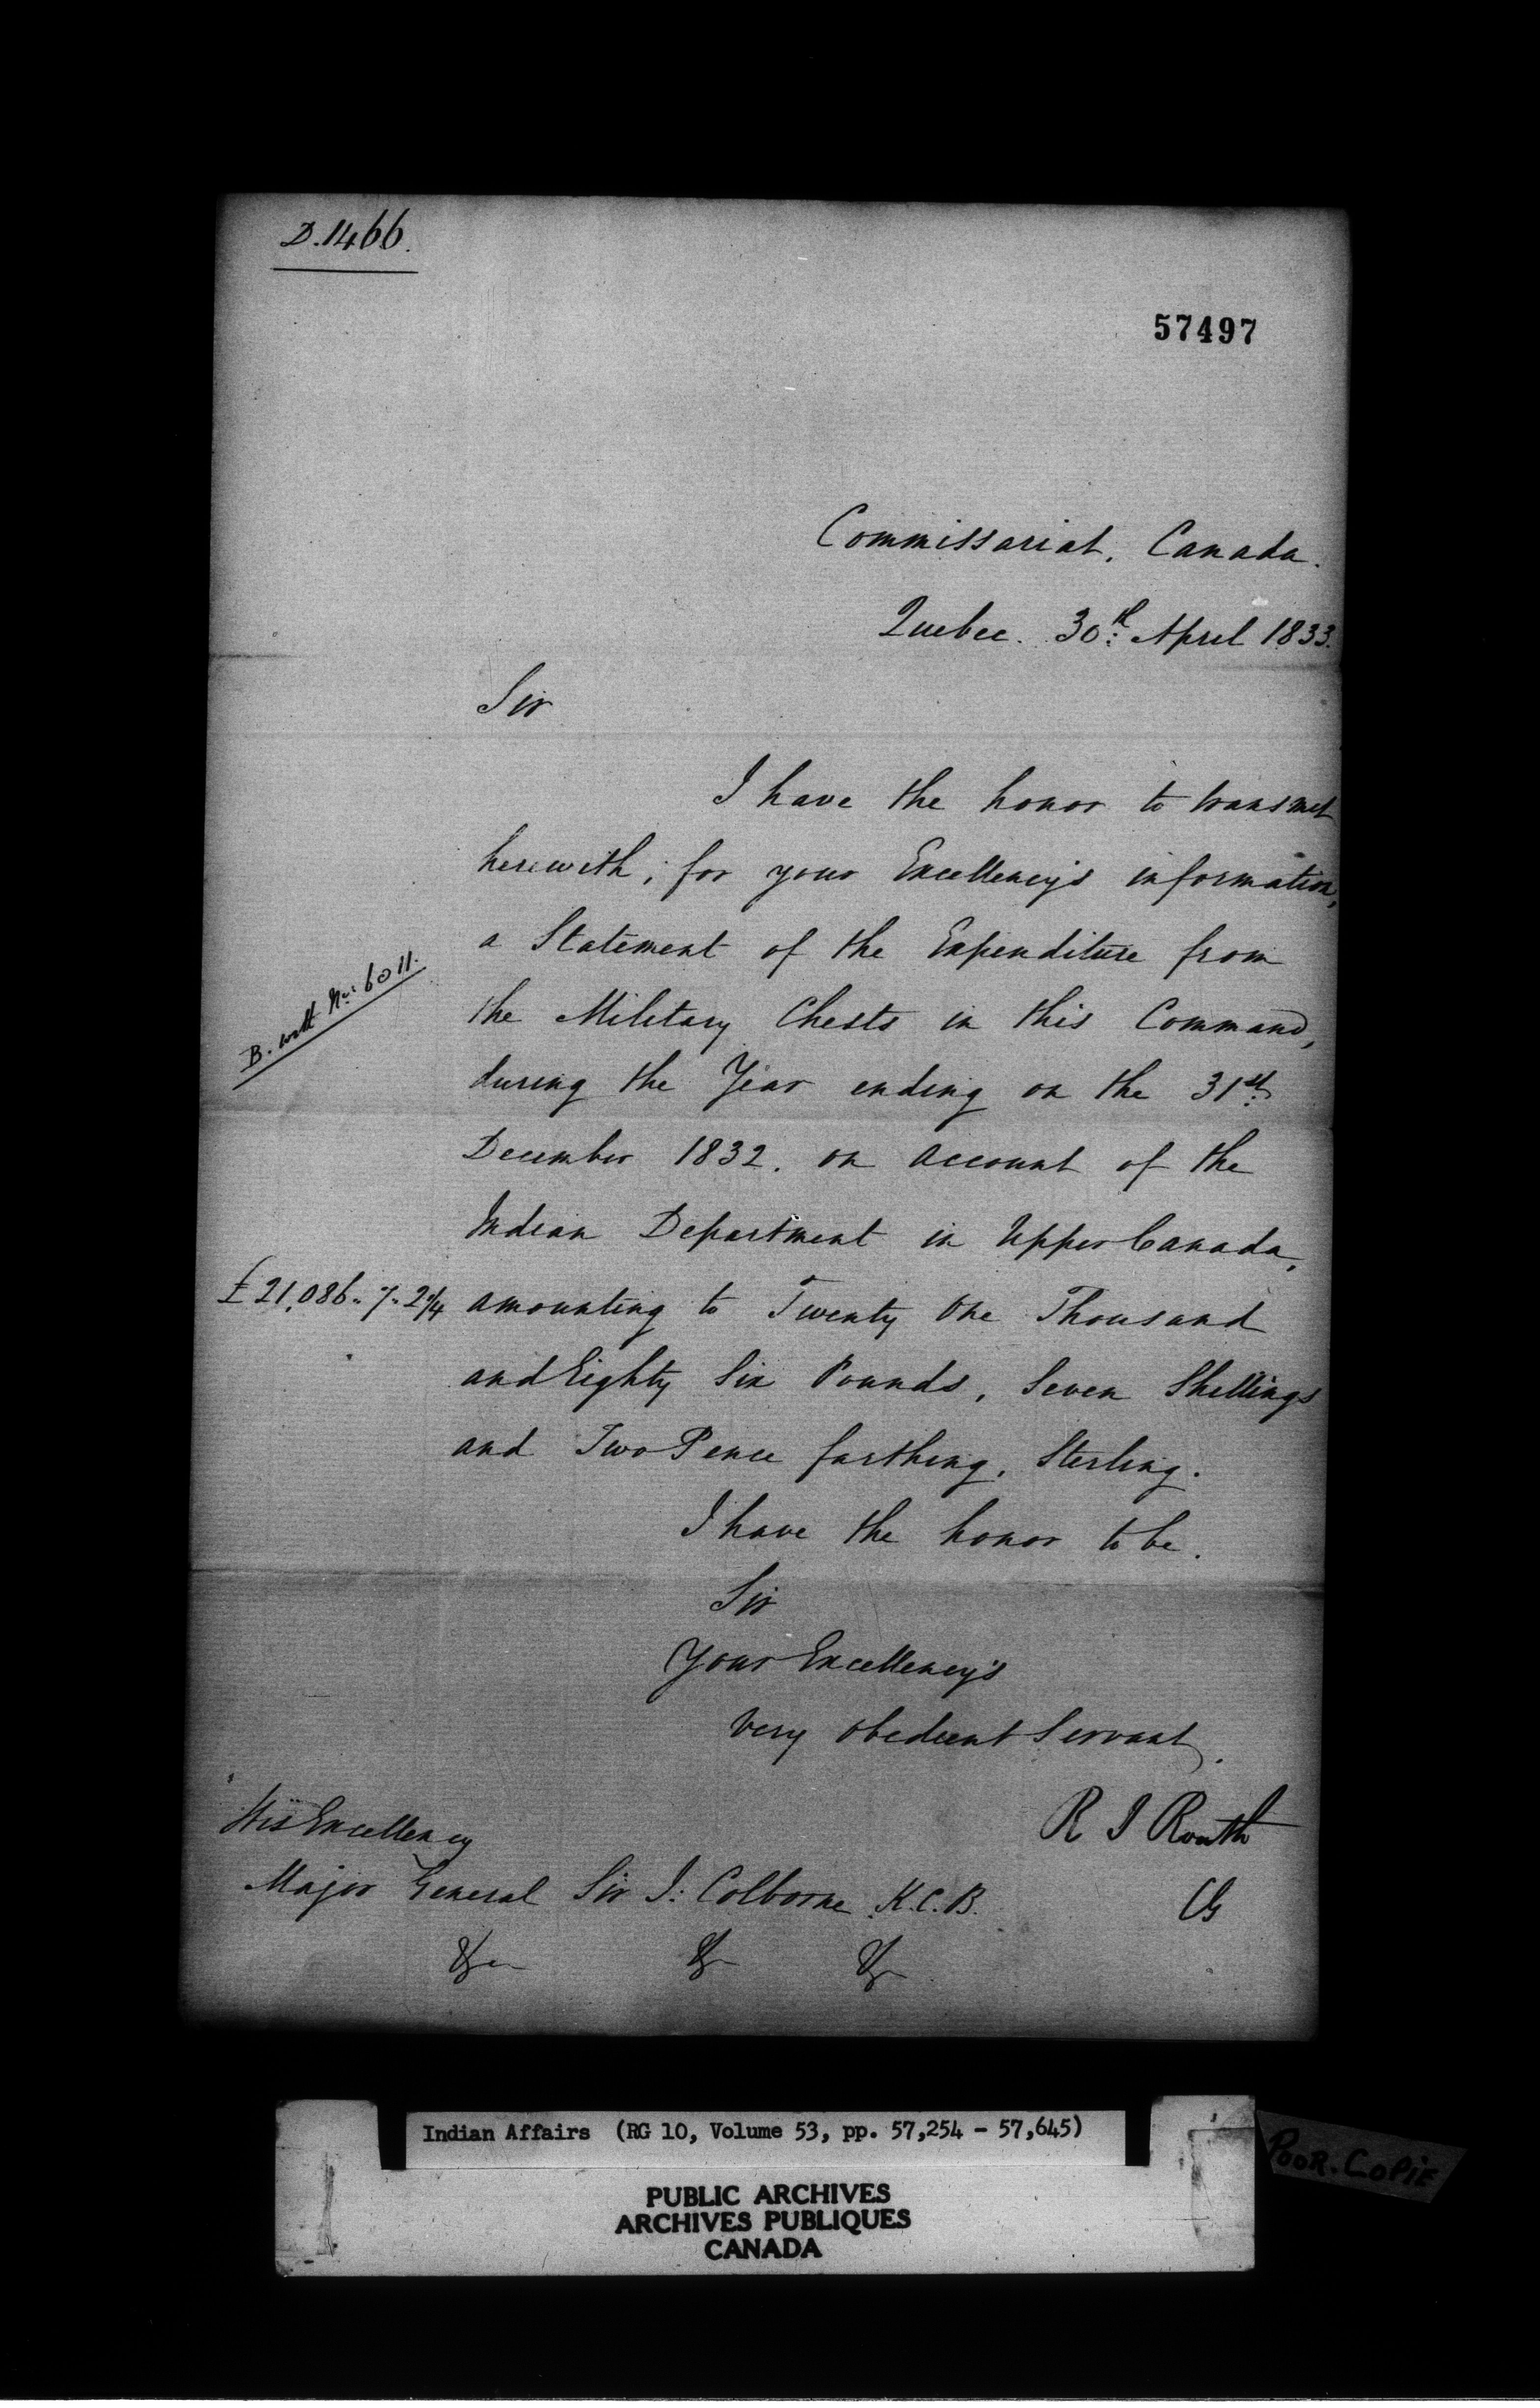 D. 1466.
57497
Commissariat, Canada.
Quebec. 30th April 1833.
Sir
I have the honor to transmit
herewith, for your Excellency's information,
a Statement of the Expenditure from
the Military Chests in this Command,
B. with No. 6011.
during the Year ending on the 31st
December 1832. on account of the
Indian Department in Upper Canada,
£21,086..7..2¼ amounting to Twenty One Thousand
and Eighty Six Pounds, Seven Shillings
and Two Pence farthing, Sterling.
I have the honor to be.
Sir
Your Excellency's
Very obedient Servant.
R I Routh
CG
His Excellency
Major General Sir J: Colborne K.C.B.
&c &c &c
Indian Affairs (RG 10, Volume 53, pp. 57,254 - 57,645)
PUBLIC ARCHIVES
ARCHIVES PUBLIQUES
CANADA
POOR. COPIE